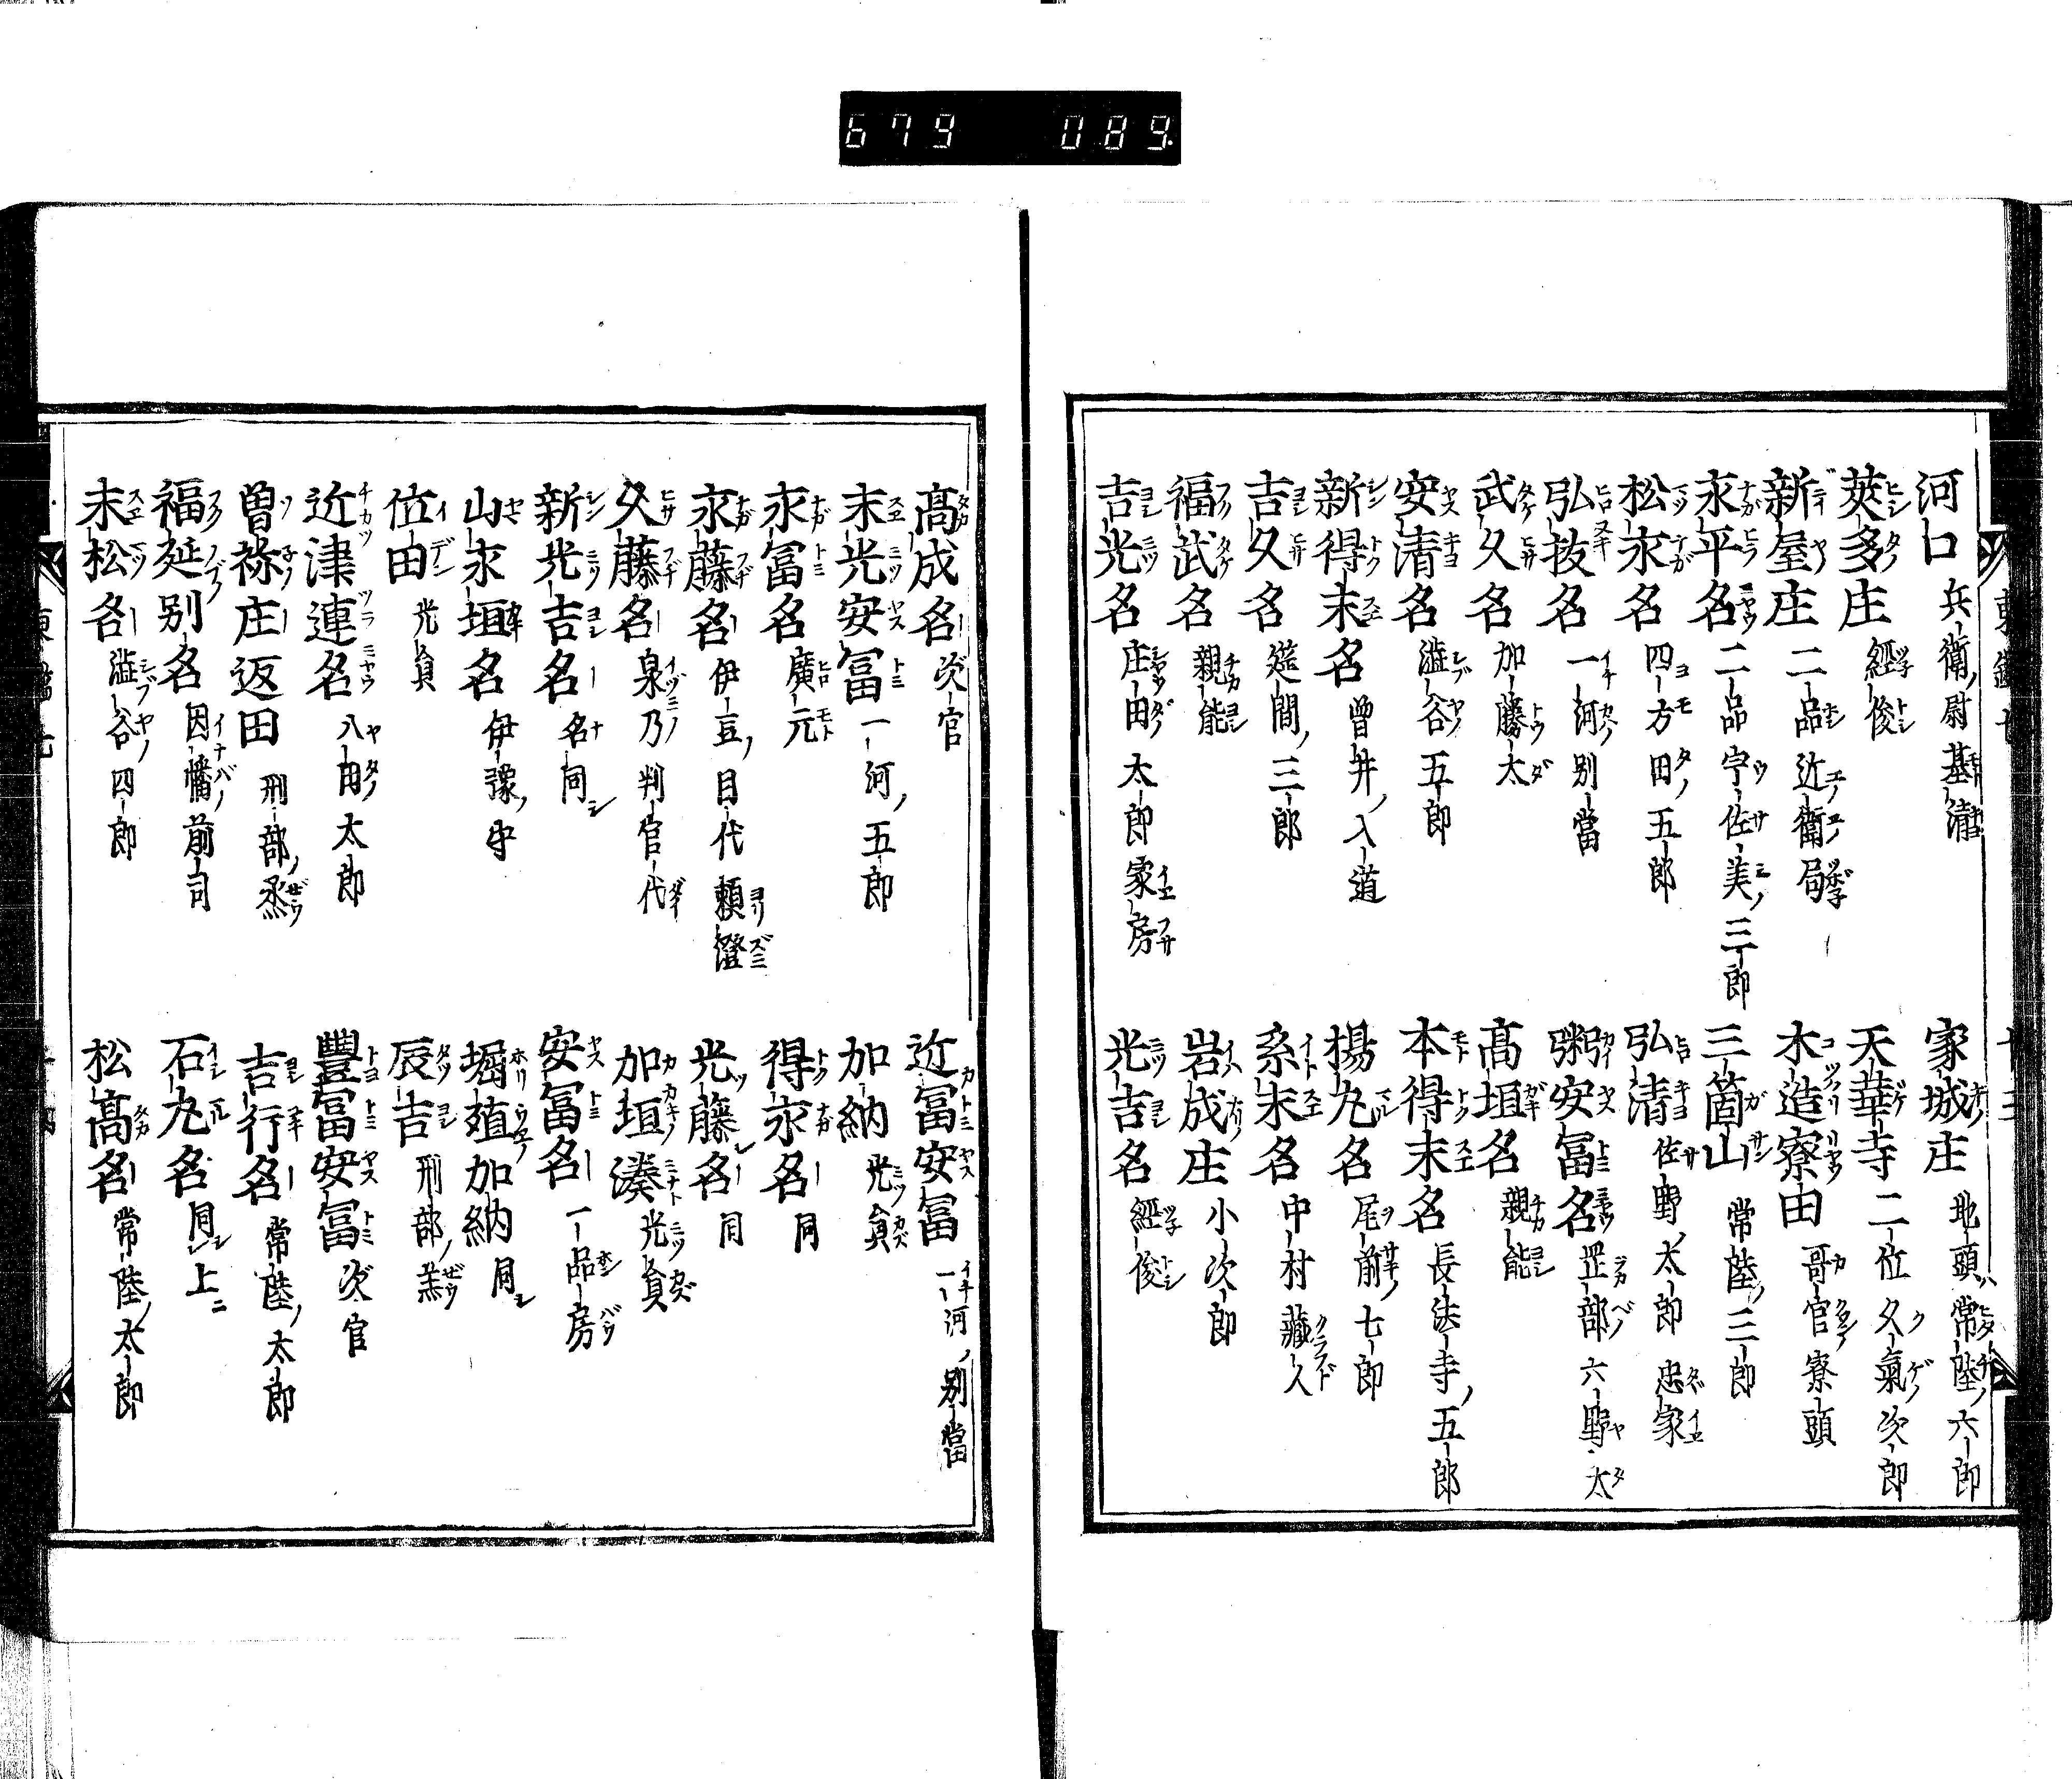 679 089
河口 兵衛ノ尉基淸
家城庄 地頭ハ常陸六郎
莢多庄 經俊
天華寺 二位久氣ノ次郎
新屋庄 二品近衛局
木造寮田 哥官寮頭
永平名 二品宇佐美ノ三郎
三箇山 常陸ノ三郎
松永名 四方田ノ五郎
弘清 佐野ノ太郎忠家
弘抜名 一河ノ別當
粥安冨名 罡部ノ六野太
武久名 加藤太
高垣名 親能
安清名 澁谷ノ五郎
本得末名 長法寺ノ五郎
新得末名 曽井ノ入道
揚丸名 尾前ノ七郎
吉久名 筵間ノ三郎
糸末名 中村藏人
福武名 親能
岩成庄 小次郎
吉光名 庄田太郎家房
光吉名 經俊
高成名 次官
近冨安冨 一河ノ別當
末光安冨 一河ノ五郎
加納 光貟
永冨名 廣元
得永名 同
永藤名 伊豆ノ目代頼澄
光藤名 同
久藤名 泉乃判官代
加垣湊 光貟
新光吉名 名同シ
安冨名 一品房
山永垣名 伊豫ノ守
堀殖加納 同シ
位田 光貟
辰吉 刑部ノ丞
近津連名 八田太郎
豐冨安冨 次官
曽祢庄返田 刑部ノ丞
吉行名 常陸ノ太郎
福延別名 因幡ノ前司
石丸名 同シ上ニ
末松名 澁谷ノ四郎
松高名 常陸ノ太郎